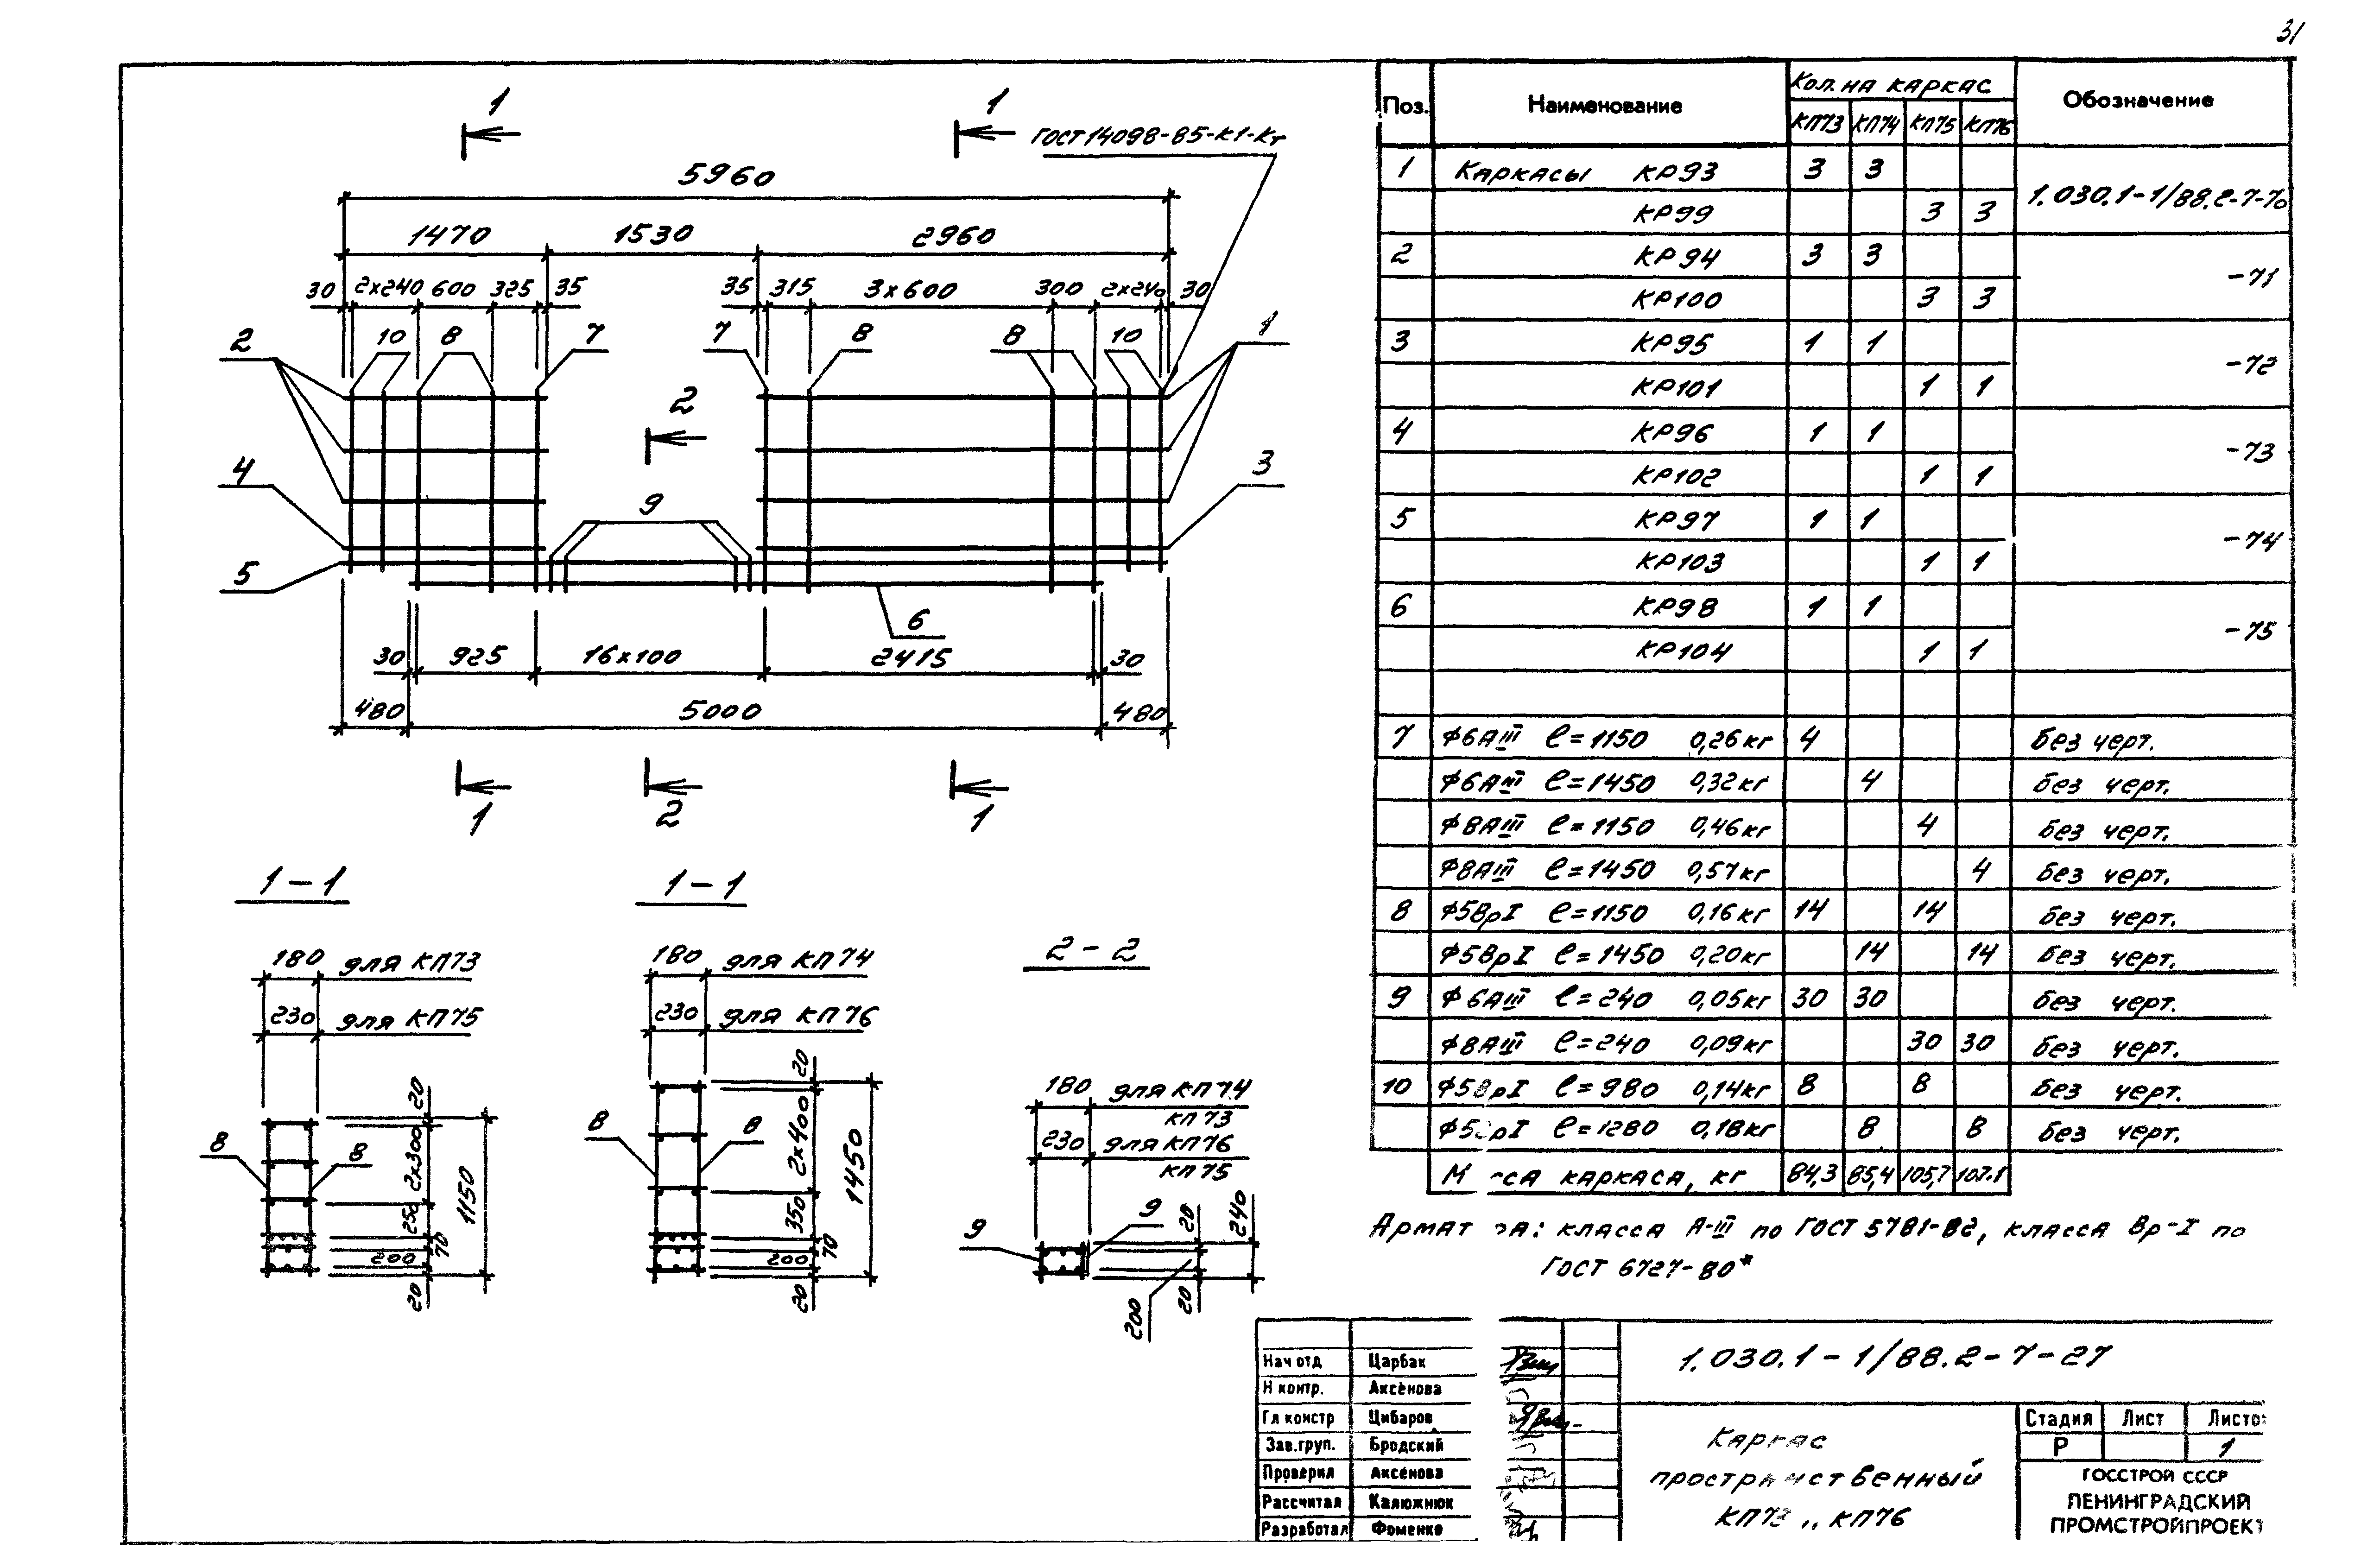 31
1 1
ГОСТ14098-85-К1-Кт
5960
1470 1530 2960
30 2х240 600 325 35 35 315 3х600 300 2х240 30
2 10 8 7 7 8 8 10 1
2
4 9 3
5
6
30 925 16х100 2415 30
480 5000 480
1 2 1
1-1
180 для КП73
230 для КП75
8 8
20
2х300
250
70
200
20
1150
1-1
180 для КП74
230 для КП76
8 8
20
2х400
350
70
200
20
1450
2-2
180 для КП74
КП73
230 для КП76
КП75
9 9
20
200
20
240
Поз. Наименование Кол. на каркас Обозначение
КП73 КП74 КП75 КП76
1 Каркасы КР93 3 3 1.030.1-1/88.2-7-70
КР99 3 3
2 КР94 3 3 -71
КР100 3 3
3 КР95 1 1 -72
КР101 1 1
4 КР96 1 1 -73
КР102 1 1
5 КР97 1 1 -74
КР103 1 1
6 КР98 1 1 -75
КР104 1 1
7 Ф6АIII ℓ=1150 0,26кг 4 без черт.
Ф6АIII ℓ=1450 0,32кг 4 без черт.
Ф8АIII ℓ=1150 0,46кг 4 без черт.
Ф8АIII ℓ=1450 0,57кг 4 без черт.
8 Ф5ВрI ℓ=1150 0,16кг 14 14 без черт.
Ф5ВрI ℓ=1450 0,20кг 14 14 без черт.
9 Ф6АIII ℓ=240 0,05кг 30 30 без черт.
Ф8АIII ℓ=240 0,09кг 30 30 без черт.
10 Ф5ВрI ℓ=980 0,14кг 8 8 без черт.
Ф5ВрI ℓ=1280 0,18кг 8 8 без черт.
Масса каркаса, кг 84,3 85,4 105,7 107.1
Арматура: класса А-III по ГОСТ 5781-82, класса Вр-I по
ГОСТ 6727-80*
Нач отд Царбак
Н контр. Аксёнова
Гл констр Цибаров
Зав.груп. Бродский
Проверил Аксёнова
Рассчитал Калюжнюк
Разработал Фоменко
1.030.1-1/88.2-7-27
Каркас
пространственный
КП73 ,, КП76
Стадия Лист Листо
Р 1
ГОССТРОЙ СССР
ЛЕНИНГРАДСКИЙ
ПРОМСТРОЙПРОЕКТ